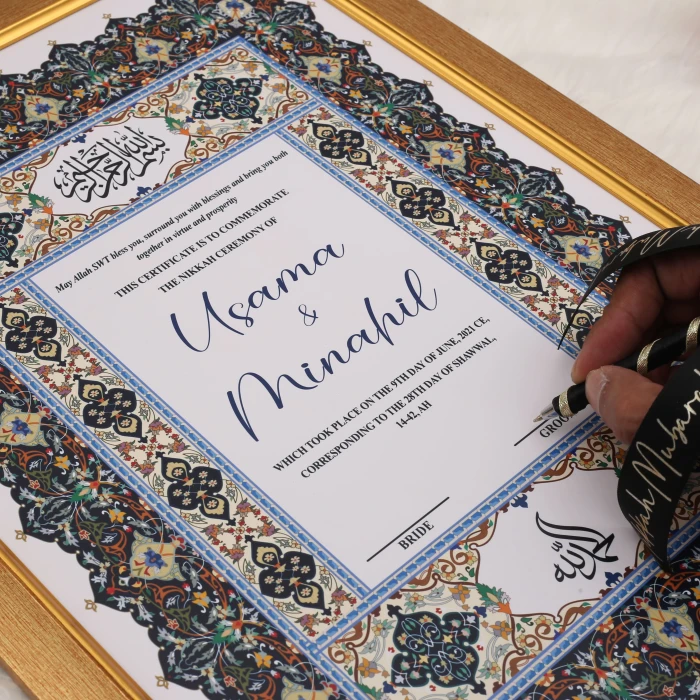 بسم الله الرحمن الرحيم
May Allah SWT bless you, surround you with blessings and bring you both
together in virtue and prosperity
THIS CERTIFICATE IS TO COMMEMORATE
THE NIKKAH CEREMONY OF
Usama
&
Minahil
WHICH TOOK PLACE ON THE 9TH DAY OF JUNE, 2021 CE,
CORRESPONDING TO THE 28TH DAY OF SHAWWAL,
14-42, AH
GROO
BRIDE